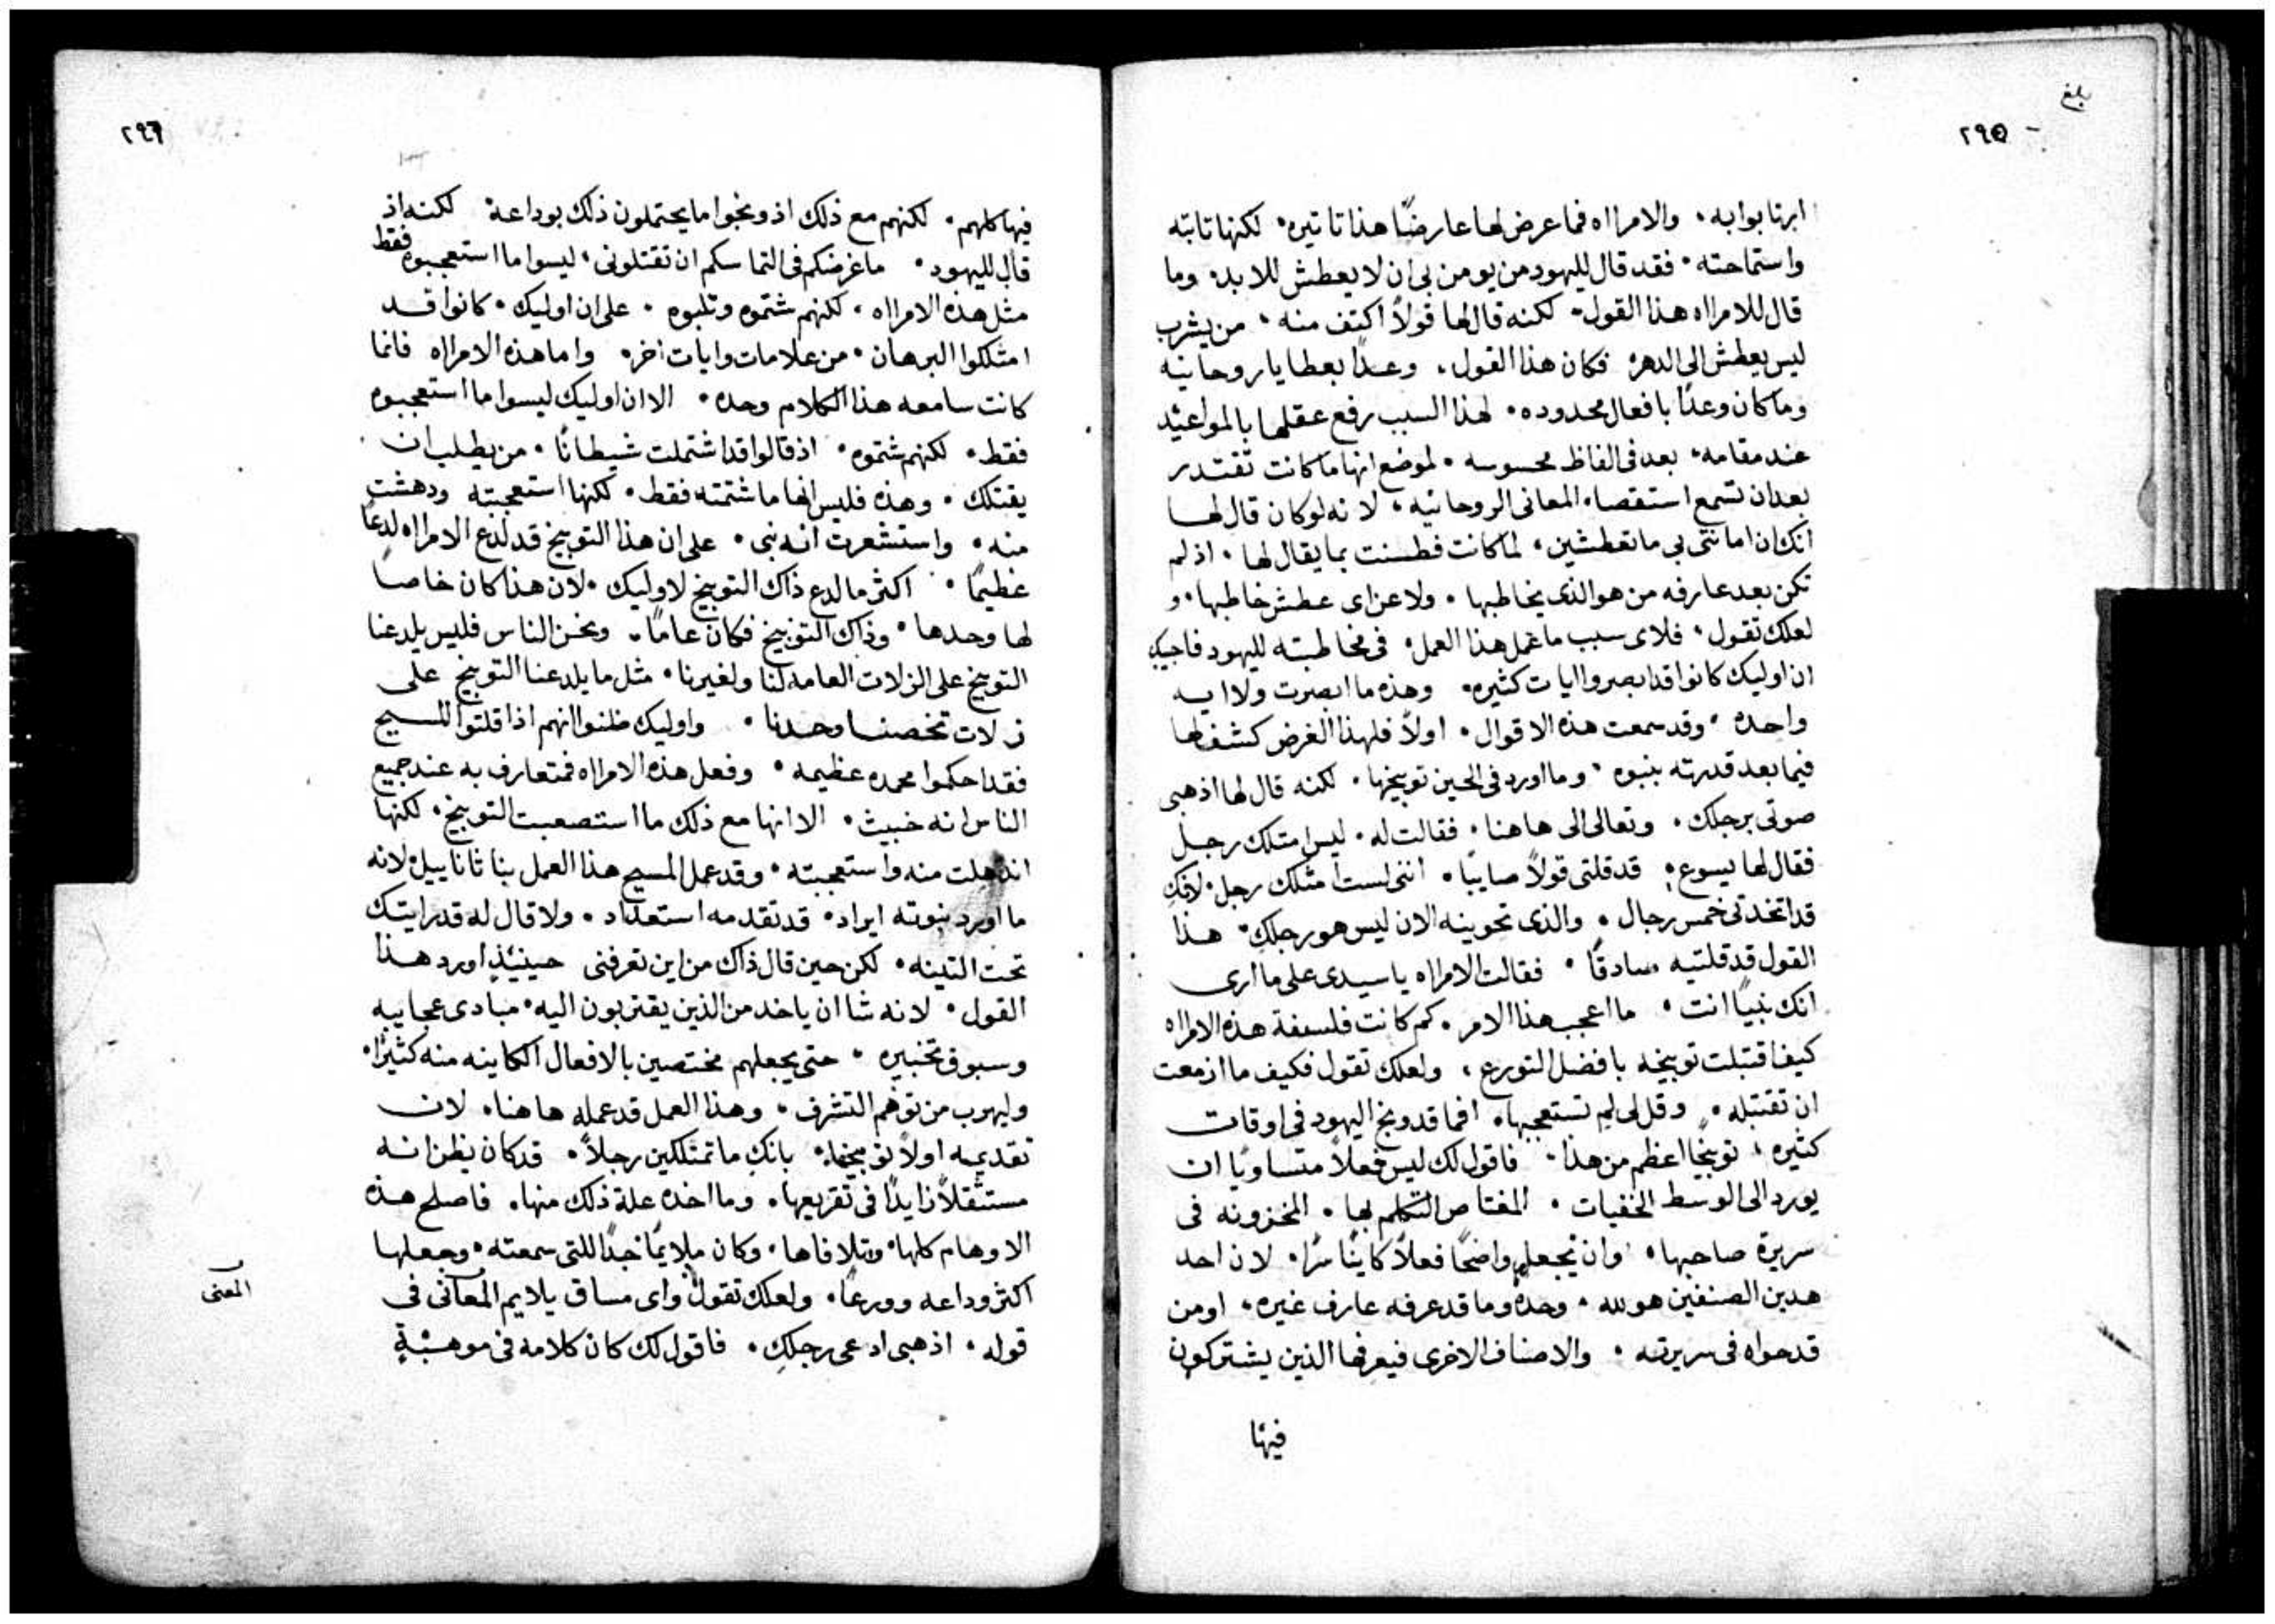 بلغ
٢٩٥
ابرنا بوابه . والامرااه فما عرض لها عارضًا هذا تاثيره . لكنها تابته
واستماحته . فقد قال لليهود من يومن بي ان لا يعطش للابد . وما
قال للامرااه هذا القول . لكنه قال لها قولاً اكتف منه . من يشرب
ليس يعطش الى الدهر . فكان هذا القول . وعدًا بعطايا روحانيه
وما كان وعدًا بافعال محدوده . لهذا السبب رفع عقلها بالمواعيد
عند مقامه . بعد في الفاظ محسوسه . لموضع انها ما كانت تقتدر
بعد ان تسمع استقصاء المعاني الروحانيه . لانه لو كان قال لها
انك ان امانتي بي ما تعطشين . لما كانت فطنت بما يقال لها . اذ لم
تكن بعد عارفه من هو الذي يخاطبها . ولا عن اي عطش خاطبها . و
لعلك تقول . فلاى سبب ما عمل هذا العمل . في مخاطبته لليهود فاجيبك
ان اوليك كانوا قد ابصروا ايات كثيره . وهذه ما ابصرت ولا ايه
واحده . وقد سمعت هذه الاقوال . اولاً فلهذا الغرض كشف لها
فيما بعد قدرته بنبوه . وما اورد في الحين توبيخها . لكنه قال لها اذهبي
صوتي برجلك . وتعالي الى هاهنا . فقالت له . ليس امتلك رجل
فقال لها يسوع . قد قلتي قولاً صايبًا . انني لست امتلك رجل . لانكِ
قد اتخدتي خمس رجال . والذي تحوينه الان ليس هو رجلكِ . هذا
القول قد قلتيه صادقًا . فقالت الامرااه يا سيدي على ما ارى
انك نبيًا انت . ما اعجب هذا الامر . كم كانت فلسفة هذه الامرااه
كيف اقتبلت توبيخه بافضل التورع . ولعلك تقول فكيف ما ازمعت
ان تقتبله . وقل لي لم تستعجبها . افما قد وبخ اليهود في اوقات
كثيره . توبيخًا اعظم من هذا . فاقول لك ليس فعلاً متساويًا ان
يورد الى الوسط الخفيات . المغتاص التكلم بها . المخزونه في
سريرة صاحبها . وان تجعله واضحًا فعلاً كاينًا سرًا . لان احد
هدين الصنفين هو لله . وحده وما قد عرفه عارف غيره . او من
قد حواه في سريرته . والاصناف الاخرى فيعرفها الذين يشتركون
فيها
٢٩٦
فيها كلهم . لكنهم مع ذلك اذ وبخوا ما يحتملون ذلك بوداعة . لكنه اذ
قال لليهود . ما غرضكم في التماسكم ان تقتلوني . ليسوا ما استعجبوه فقط
مثل هذه الامرااه . لكنهم شتموه وتلبوه . على ان اوليك . كانوا قد
امتلكوا البرهان . من علامات وايات اخر . واما هذه الامرااه فانما
كانت سامعه هذا الكلام وحده . الا ان اوليك ليسوا ما استعجبوه
فقط . لكنهم شتموه . اذ قالوا قد اشتملت شيطانًا . من يطلب ان
يقتلك . وهذه فليس انها ما شتمته فقط . لكنها استعجبته ودهشت
منه . واستشعرت انه نبي . على ان هذا التوبيخ قد لدع الامرااه لدعًا
عظيمًا . اكثر مما لدع ذاك التوبيخ لاوليك . لان هذا كان خاصا
لها وحدها . وذاك التوبيخ فكان عامًا . ونحن الناس فليس يلدعنا
التوبيخ على الزلات العامه لنا ولغيرنا . مثل ما يلدعنا التوبيخ على
زلات تخصنا وحدنا . واوليك ظنوا انهم اذا قتلوا المسيح
فقد احكموا محمده عظيمه . وفعل هذه الامرااه فمتعارف به عند جميع
الناس انه خبيث . الا انها مع ذلك ما استصعبت التوبيخ . لكنها
اندهلت منه واستعجبته . وقد عمل المسيح هذا العمل بناثاناييل . لانه
ما اورد نبوته ايراد . قد تقدمه استعداد . ولا قال له قد رايتك
تحت التينه . لكن حين قال ذاك من اين تعرفني حينيئذٍ اورد هذا
القول . لانه شا ان ياخد من الذين يقتربون اليه . مبادى عجايبه
وسبوق تخبيره . حتى يجعلهم مختصين بالافعال الكاينه منه كثيرًا .
وليهرب من توهم التشرف . وهذا العمل قد عمله هاهنا . لان
تقديمه اولاً توبيخها . بانكِ ما تمتلكين رجلاً . قد كان يظن انه
مستثقلاً زايدًا في تقريعها . وما اخده علة ذلك منها . فاصلح هذه
الاوهام كلها . وتلافاها . وكان ملايمًا جدًا للتي سمعته . وجعلها
اكثر وداعه وورعًا . ولعلك تقول واى مساق يلايم المعاني في
المعنى
قوله . اذهبي ادعي رجلكِ . فاقول لك كان كلامه في موهبةٍ